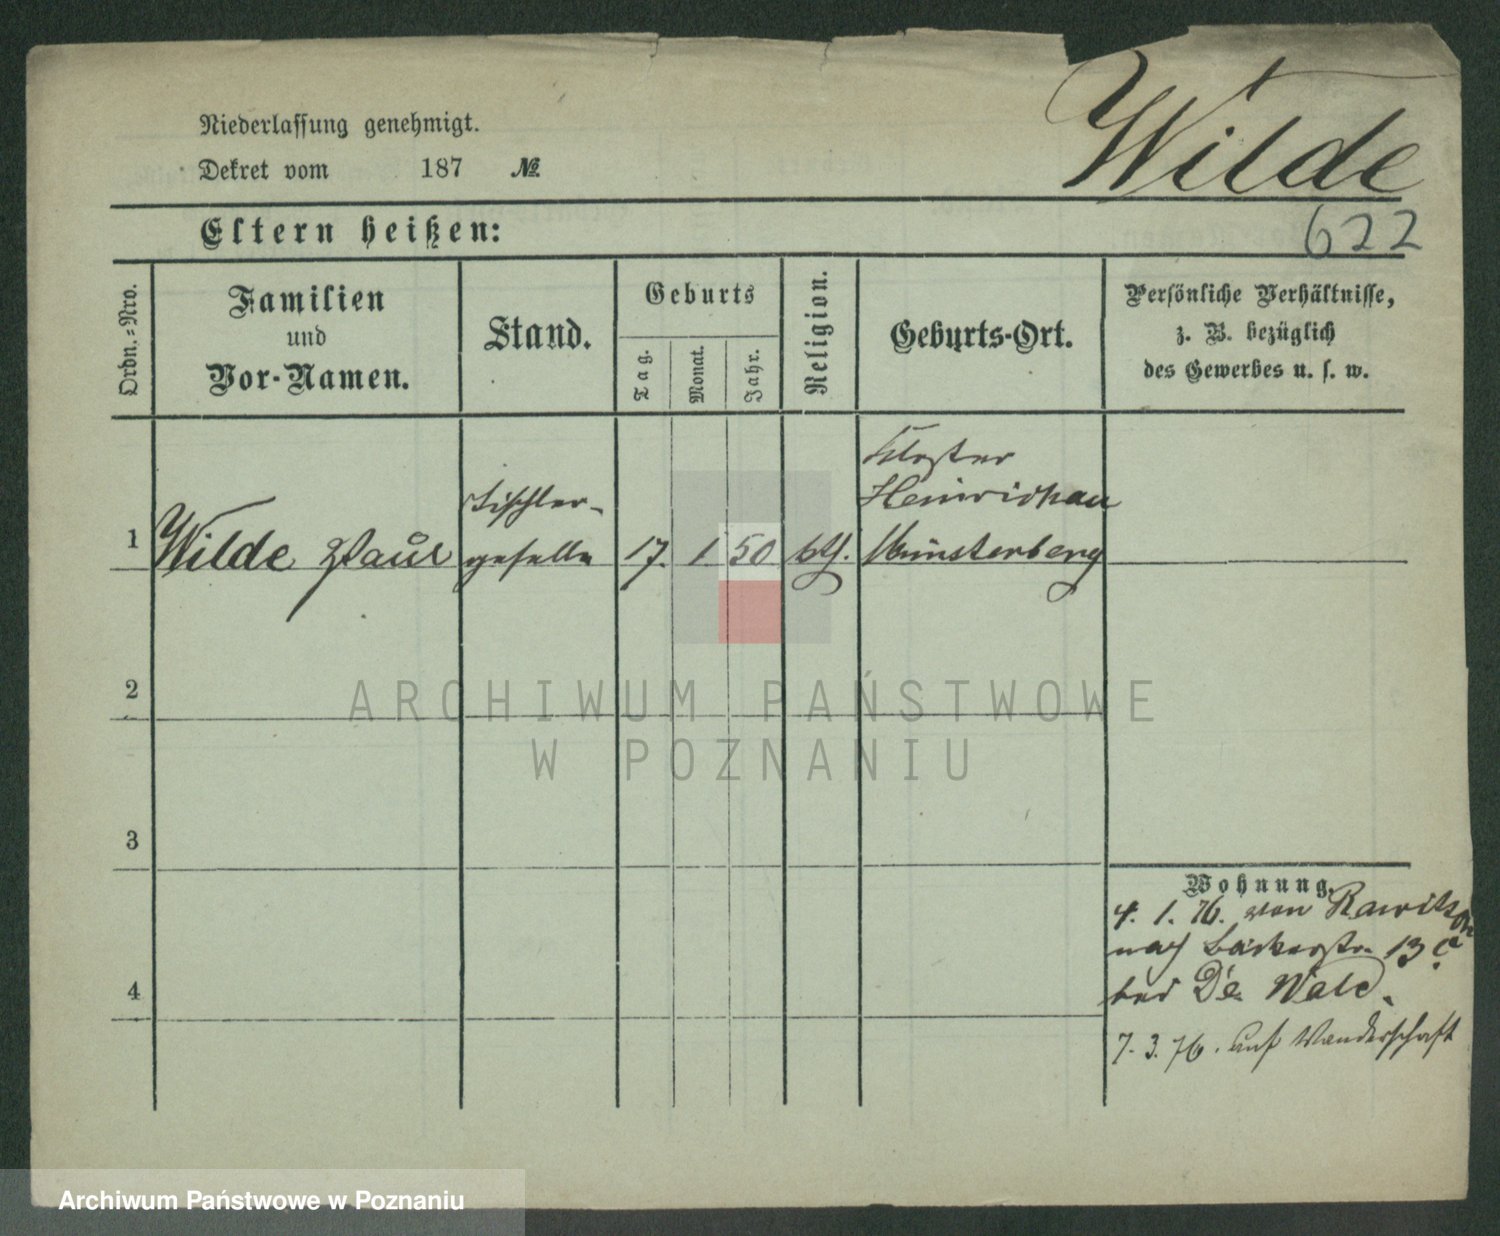 Wilde
Niederlassung genehmigt.
Dekret vom 187 №
Eltern heißen:
622
Ordn.-Nro.
Familien
und
Vor-Namen.
Stand.
Geburts
Tag.
Monat.
Jahr.
Religion.
Geburts-Ort.
Persönliche Verhältnisse,
z. B. bezüglich
des Gewerbes u. s. w.
1
Wilde Paul
Tischler-
geselle
17. 1. 50
kth.
Kloster
Heinrichau
Münsterberg
2
3
4
Wohnung.
4. 1. 76. von Rawitsch
nach Bäckerstr. 13 c
bei De Wald.
7. 3. 76. auf Wanderschaft
ARCHIWUM PAŃSTWOWE
W POZNANIU
Archiwum Państwowe w Poznaniu